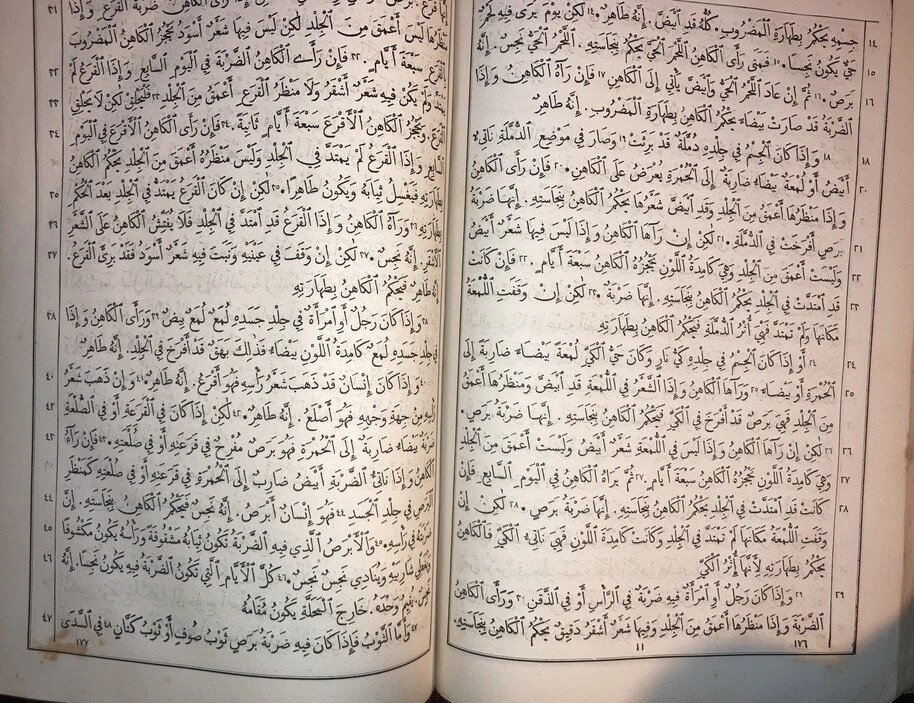 جسمه يحكم بطهارة المضروب. كله قد ابيض. إنه طاهر. ١٤ لكن يوم يرى فيه لحم
١٤ حي يكون نجسا. ١٥ فمتى رأى الكاهن اللحم الحي يحكم بنجاسته. اللحم الحي نجس. إنه
١٥ برص. ١٦ ثم إن عاد اللحم الحي وابيض يأتي إلى الكاهن ١٧ فإن رآه الكاهن وإذا
١٦ الضربة قد صارت بيضاء يحكم الكاهن بطهارة المضروب. إنه طاهر
١٨ ١٨ وإذا كان الجسم في جلده دملة قد برئت ١٩ وصار في موضع الدملة ناتئ
٢٠ أبيض أو لمعة بيضاء ضاربة إلى الحمرة يعرض على الكاهن. ٢٠ فإن رأى الكاهن
وإذا منظرها أعمق من الجلد وقد ابيض شعرها يحكم الكاهن بنجاسته. إنها ضربة
٢١ برص أفرخت في الدملة. ٢١ لكن إن رآها الكاهن وإذا ليس فيها شعر أبيض
٢٢ وليست أعمق من الجلد وهي كامدة اللون يحجزه الكاهن سبعة أيام. ٢٢ فإن كانت
٢٣ قد امتدت في الجلد يحكم الكاهن بنجاسته. إنها ضربة. ٢٣ لكن إن وقفت اللمعة
مكانها ولم تمتد فهي أثر الدملة فيحكم الكاهن بطهارته
٢٤ ٢٤ أو إذا كان الجسم في جلده كي نار وكان حي الكي لمعة بيضاء ضاربة إلى
٢٥ الحمرة أو بيضاء ٢٥ ورآها الكاهن وإذا الشعر في اللمعة قد ابيض ومنظرها أعمق
من الجلد فهي برص قد أفرخ في الكي فيحكم الكاهن بنجاسته. إنها ضربة برص.
٢٦ ٢٦ لكن إن رآها الكاهن وإذا ليس في اللمعة شعر أبيض وليست أعمق من الجلد
٢٧ وهي كامدة اللون يحجزه الكاهن سبعة أيام. ٢٧ ثم يراه الكاهن في اليوم السابع فإن
٢٨ كانت قد امتدت في الجلد يحكم الكاهن بنجاسته. إنها ضربة برص. ٢٨ لكن إن
وقفت اللمعة مكانها لم تمتد في الجلد وكانت كامدة اللون فهي ناتئ الكي فالكاهن
يحكم بطهارته لأنها أثر الكي
٢٩ ٢٩ وإذا كان رجل أو امرأة فيه ضربة في الرأس أو في الذقن ٣٠ ورأى الكاهن
الضربة وإذا منظرها أعمق من الجلد وفيها شعر أشقر دقيق يحكم الكاهن بنجاسته.
١١ ١٧٦
٣١
منظرها ليس أعمق من الجلد لكن ليس فيها شعر أسود يحجز الكاهن المضروب
٣٢ بالقرع سبعة أيام. ٣٢ فإن رأى الكاهن الضربة في اليوم السابع وإذا القرع لم
٣٣ يمتد ولم يكن فيه شعر أشقر ولا منظر القرع أعمق من الجلد ٣٣ فليحلق لكن لا يحلق
٣٤ القرع. ويحجز الكاهن الأقرع سبعة أيام ثانية. ٣٤ فإن رأى الكاهن الأقرع في اليوم
السابع وإذا القرع لم يمتد في الجلد وليس منظره أعمق من الجلد يحكم الكاهن
٣٥ بطهارته فيغسل ثيابه ويكون طاهرا. ٣٥ لكن إن كان القرع يمتد في الجلد بعد الحكم
٣٦ بطهارته ٣٦ ورآه الكاهن وإذا القرع قد امتد في الجلد فلا يفتش الكاهن على الشعر
٣٧ الأشقر. إنه نجس. ٣٧ لكن إن وقف في عينيه ونبت فيه شعر أسود فقد برئ القرع.
إنه طاهر فيحكم الكاهن بطهارته
٣٨ ٣٨ وإذا كان رجل أو امرأة في جلد جسده لمع لمع بيض ٣٩ ورأى الكاهن وإذا
في جلد جسده لمع كامدة اللون بيضاء فذلك بهق قد أفرخ في الجلد. إنه طاهر
٤٠ ٤٠ وإذا كان إنسان قد ذهب شعر رأسه فهو أقرع. إنه طاهر. ٤١ وإن ذهب شعر
٤٢ رأسه من جهة وجهه فهو أصلع. إنه طاهر. ٤٢ لكن إذا كان في القرعة أو في الصلعة
٤٣ ضربة بيضاء ضاربة إلى الحمرة فهو برص مفرخ في قرعته أو في صلعته. ٤٣ فإن رآه
الكاهن وإذا ناتئ الضربة أبيض ضارب إلى الحمرة في قرعته أو في صلعته كمنظر
٤٤ البرص في جلد الجسد ٤٤ فهو إنسان أبرص. إنه نجس فيحكم الكاهن بنجاسته. إن
٤٥ ضربته في رأسه. ٤٥ والأبرص الذي فيه الضربة تكون ثيابه مشقوقة ورأسه يكون مكشوفا
٤٦ ويغطي شاربيه وينادي نجس نجس. ٤٦ كل الأيام التي تكون الضربة فيه يكون نجسا. إنه
نجس. يقيم وحده. خارج المحلة يكون مقامه
٤٧ ٤٧ وأما الثوب فإذا كان فيه ضربة برص ثوب صوف أو ثوب كتان ٤٨ في السدى
١٧٧